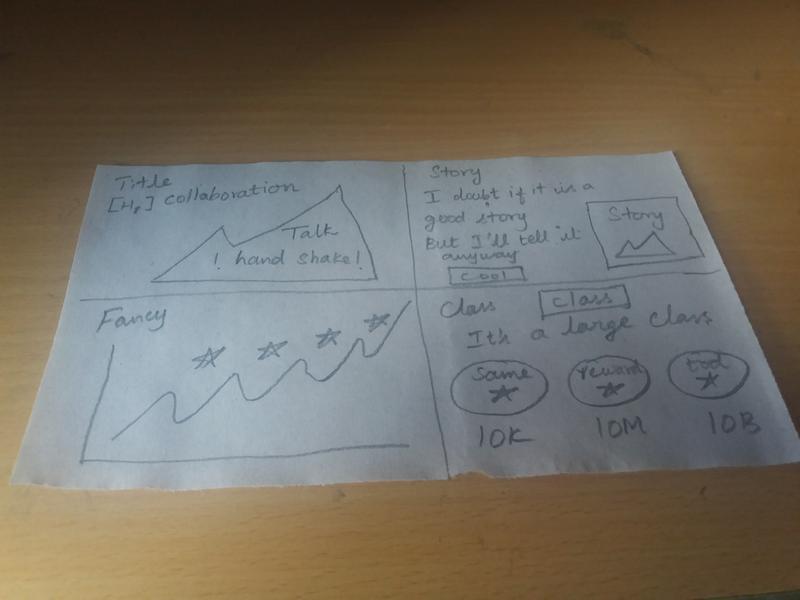 Title
collaboration
Talk
! hand shake!
Story
I doubt if it is a
good story
But I'll tell it
anyway
cool
Story
Fancy
Class
class
It's a large class
same
reward
10K
10M
10B